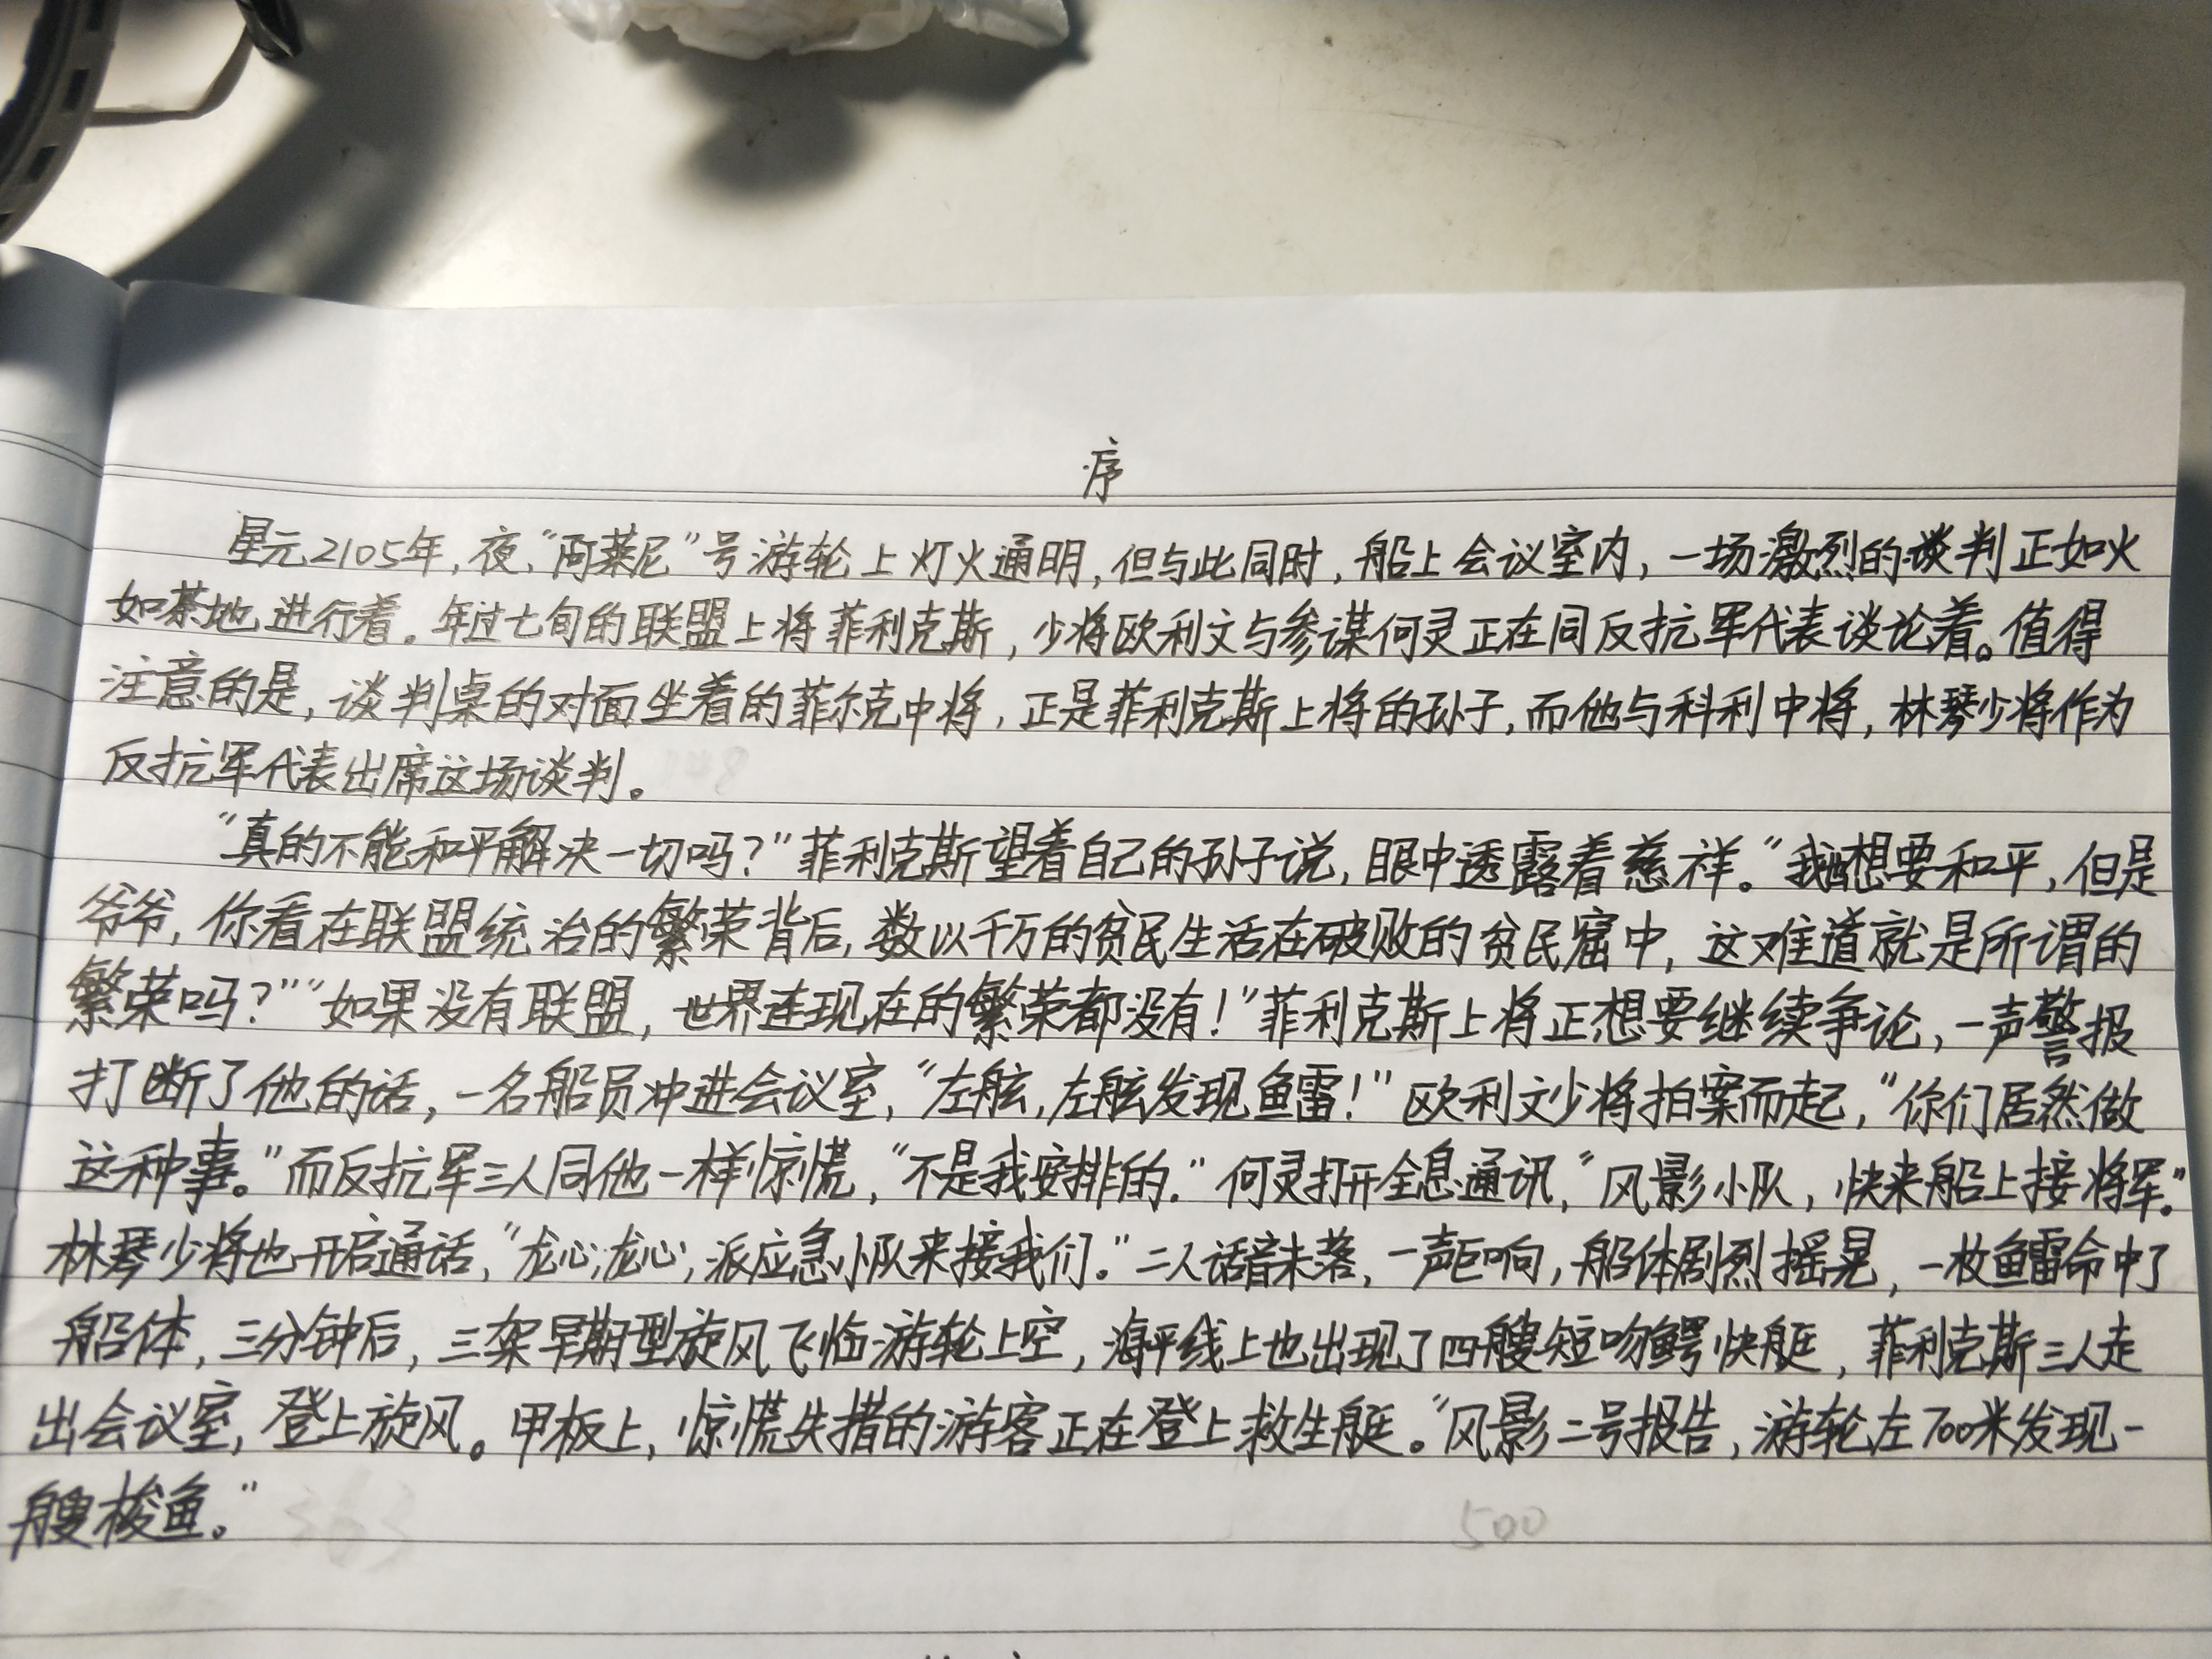 序
星元2105年,夜,“阿莱尼”号游轮上灯火通明,但与此同时,船上会议室内,一场激烈的谈判正如火
如荼地进行着。年过七旬的联盟上将菲利克斯,少将欧利文与参谋何灵正在同反抗军代表谈论着。值得
注意的是,谈判桌的对面坐着的菲尔克中将,正是菲利克斯上将的孙子,而他与科利中将,林琴少将作为
反抗军代表出席这场谈判。
“真的不能和平解决一切吗?”菲利克斯望着自己的孙子说,眼中透露着慈祥。“我想要和平,但是
爷爷,你看在联盟统治的繁荣背后,数以千万的贫民生活在破败的贫民窟中,这难道就是所谓的
繁荣吗?”“如果没有联盟,世界连现在的繁荣都没有!”菲利克斯上将正想要继续争论,一声警报
打断了他的话,一名船员冲进会议室,“左舷,左舷发现鱼雷!”欧利文少将拍案而起,“你们居然做
这种事。”而反抗军三人同他一样惊慌,“不是我安排的.”何灵打开全息通讯,“风影小队,快来船上接将军。”
林琴少将也开启通话,“龙心,龙心,派应急小队来接我们。”二人话音未落,一声巨响,船体剧烈摇晃,一枚鱼雷命中了
船体,三分钟后,三架早期型旋风飞临游轮上空,海平线上也出现了四艘短吻鳄快艇,菲利克斯三人走
出会议室,登上旋风。甲板上,惊慌失措的游客正在登上救生艇。“风影二号报告,游轮左700米发现一
艘梭鱼。”
500